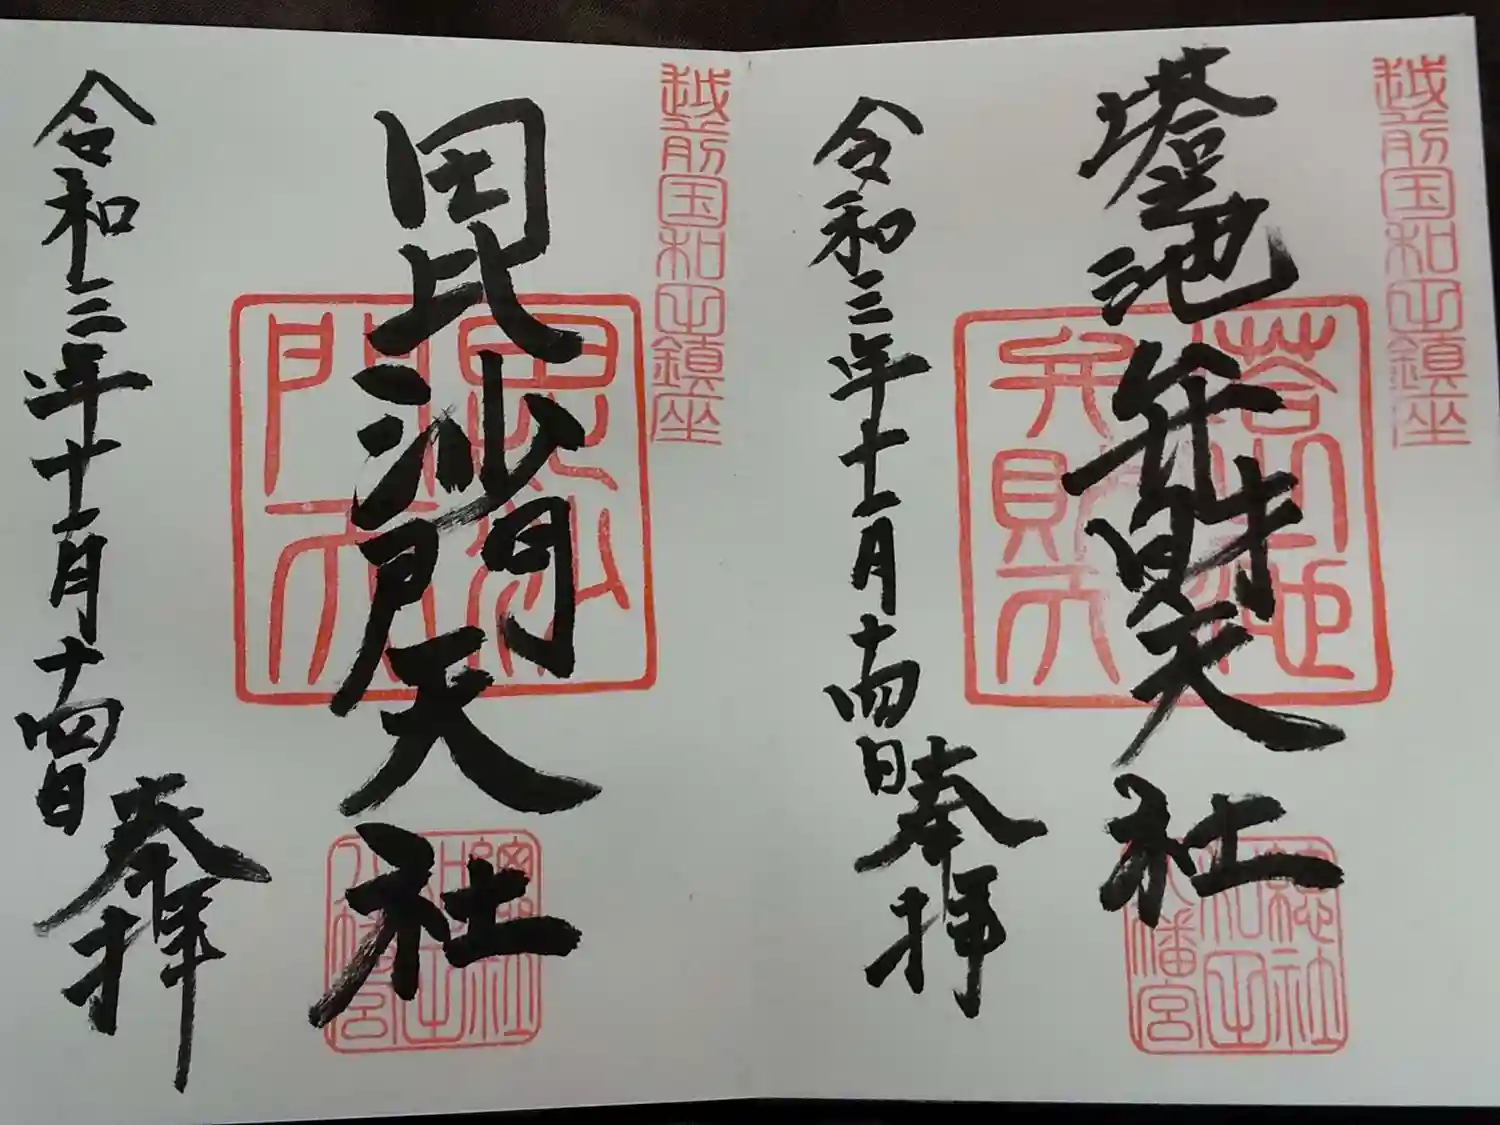 越前国和田鎮座
塔池弁財天社
弁財天
總社
和田
八幡宮
令和三年十一月十四日
奉拝
越前国和田鎮座
毘沙門天社
毘沙
門天
總社
和田
八幡宮
令和三年十一月十四日
奉拝